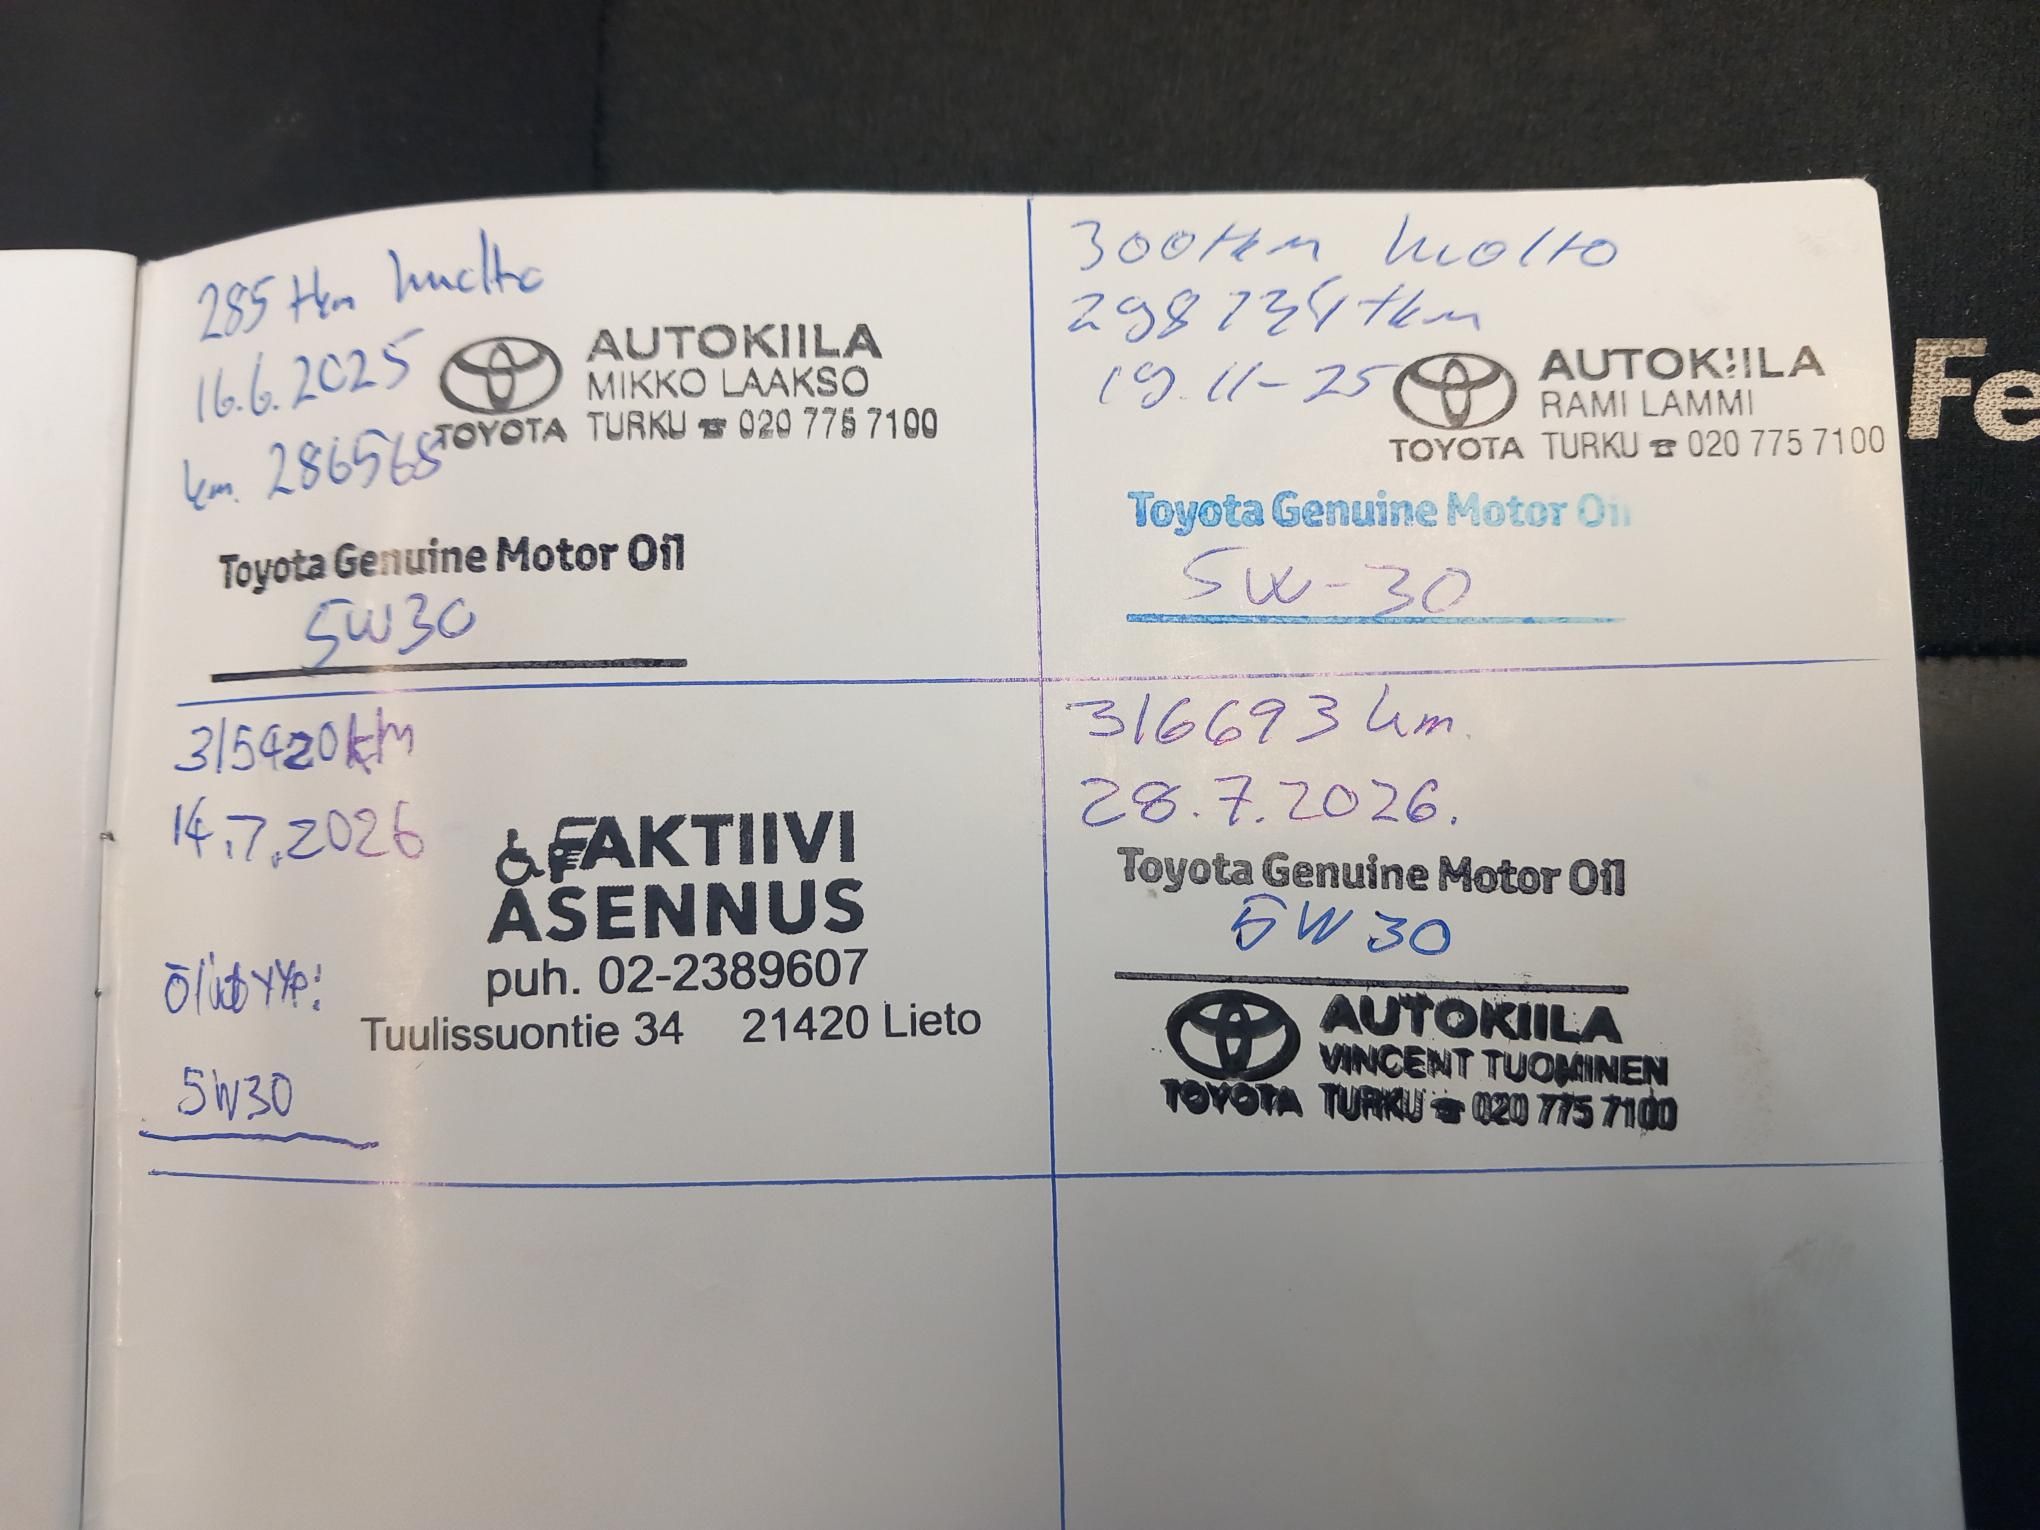 285 tkm huolto
16.6.2025
km. 286568
AUTOKIILA
MIKKO LAAKSO
TOYOTA TURKU ☎ 020 775 7100
Toyota Genuine Motor Oil
5W30
300tkm huolto
298734tkm
19.11-25
AUTOKIILA
RAMI LAMMI
TOYOTA TURKU ☎ 020 775 7100
Toyota Genuine Motor Oil
5W-30
315420km
14.7.2026
FAKTIIVI
ASENNUS
puh. 02-2389607
Tuulissuontie 34 21420 Lieto
5W30
316693 km.
28.7.2026.
Toyota Genuine Motor Oil
5W30
AUTOKIILA
VINCENT TUOMINEN
TOYOTA TURKU ☎ 020 775 7100
Fe